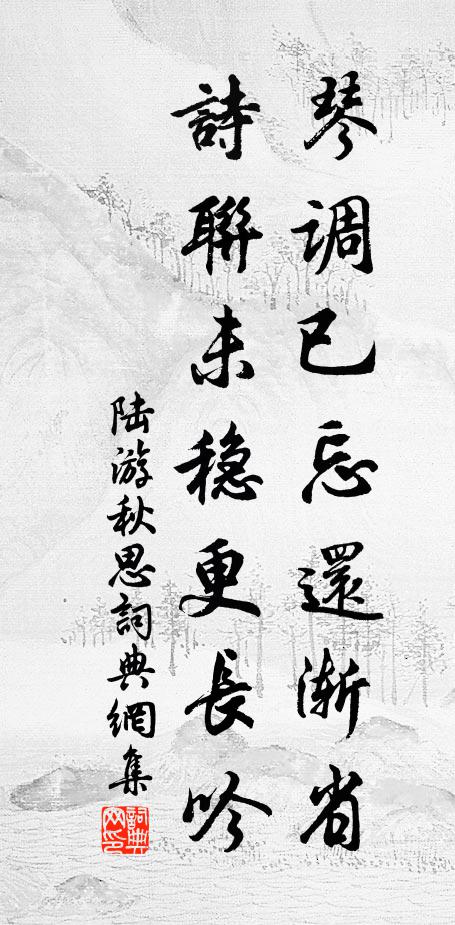 琴調已忘還漸省
詩聯未穩更長吟
陆游秋思詞典網集
詞典
网印